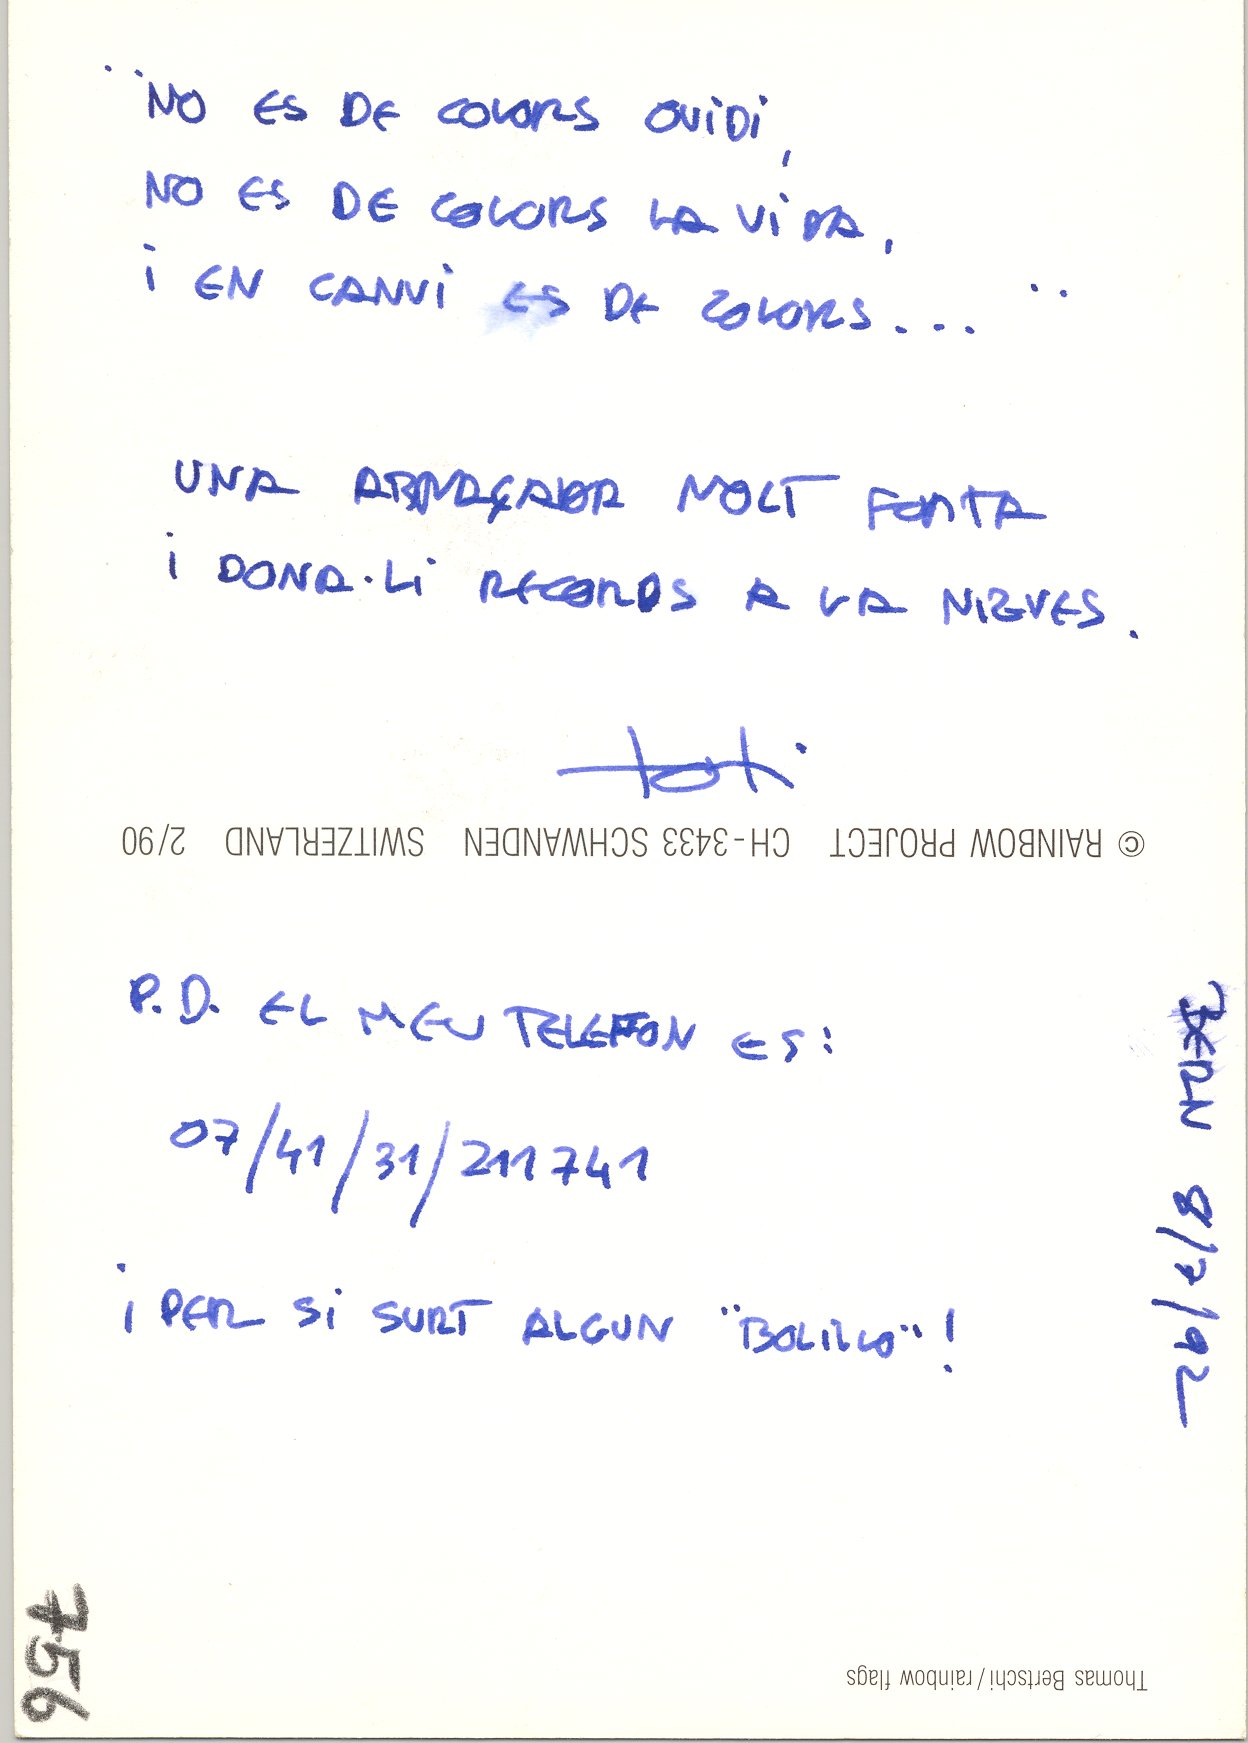 ¨NO ES DE COLORS OVIDI,
NO ES DE COLORS LA VIDA,
i EN CANVI ES DE COLORS... ¨
UNA ABRAÇADA MOLT FORTA
i DONA·LI RECORDS A LA NIEVES.
toti
© RAINBOW PROJECT CH-3433 SCHWANDEN SWITZERLAND 2/90
P.D. EL MEU TELEFON ES:
07/41/31/211741
¡PER SI SURT ALGUN ¨BOLILLO¨!
BERN 8/7/92
756
Thomas Bertschi/rainbow flags